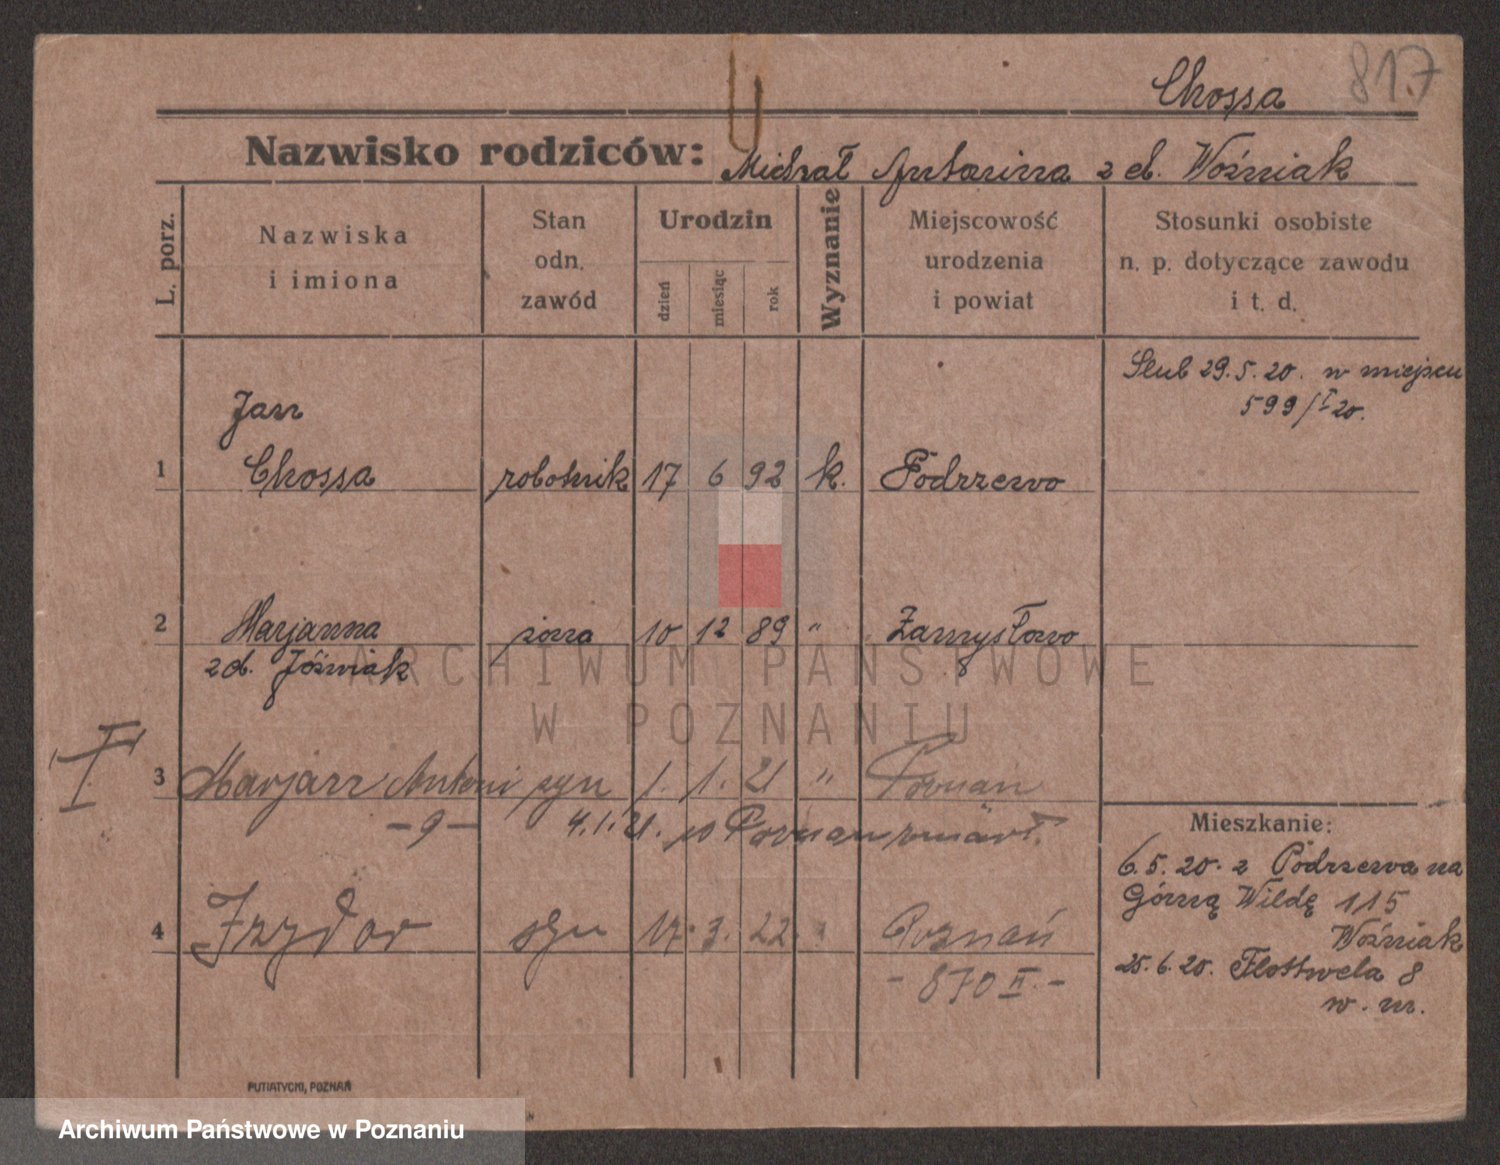 817
Chossa
Nazwisko rodziców: Michał Antonina z d. Woźniak
L. porz.
Nazwiska i imiona
Stan odn. zawód
Urodzin
dzień
miesiąc
rok
Wyznanie
Miejscowość urodzenia i powiat
Stosunki osobiste n. p. dotyczące zawodu i t. d.
Ślub 29.5.20. w miejscu
599/I 20.
Jan
1 Chossa robotnik 17 6 92 k. Podrzewo
2 Marjanna żona 10 12 89 " Zamysłowo
z d. Jóźwiak
3 Marjan Antoni syn 1. 1. 21 " Poznań
- 9 - 4.1.21. w Poznaniu zmarł.
4 Izydor syn 17. 3. 22 " Poznań
- 870 II. -
Mieszkanie:
6.5.20. z Podrzewa na
Górną Wildę 115
Woźniak
25.6.20. Flottwela 8
w. m.
PUTIATYCKI, POZNAŃ
ARCHIWUM PAŃSTWOWE
W POZNANIU
Archiwum Państwowe w Poznaniu